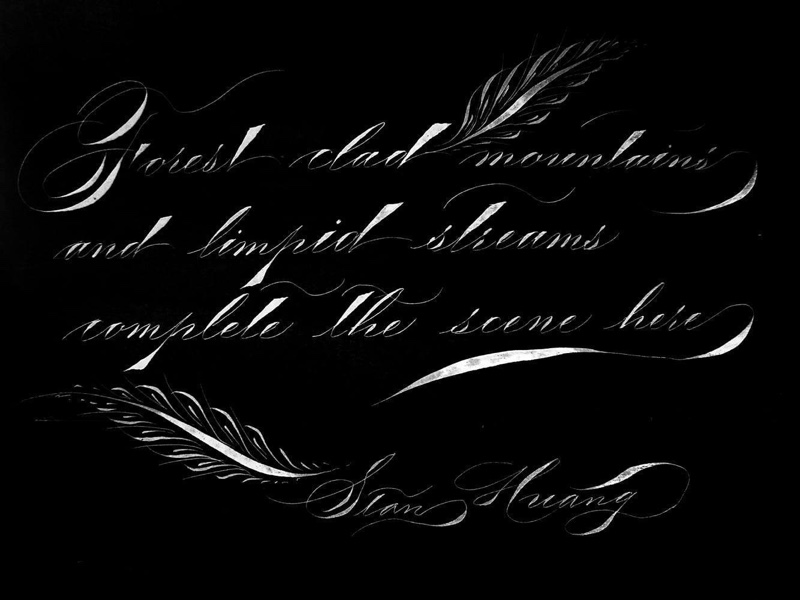 Forest clad mountains
and limpid streams
complete the scene here
Stan Huang